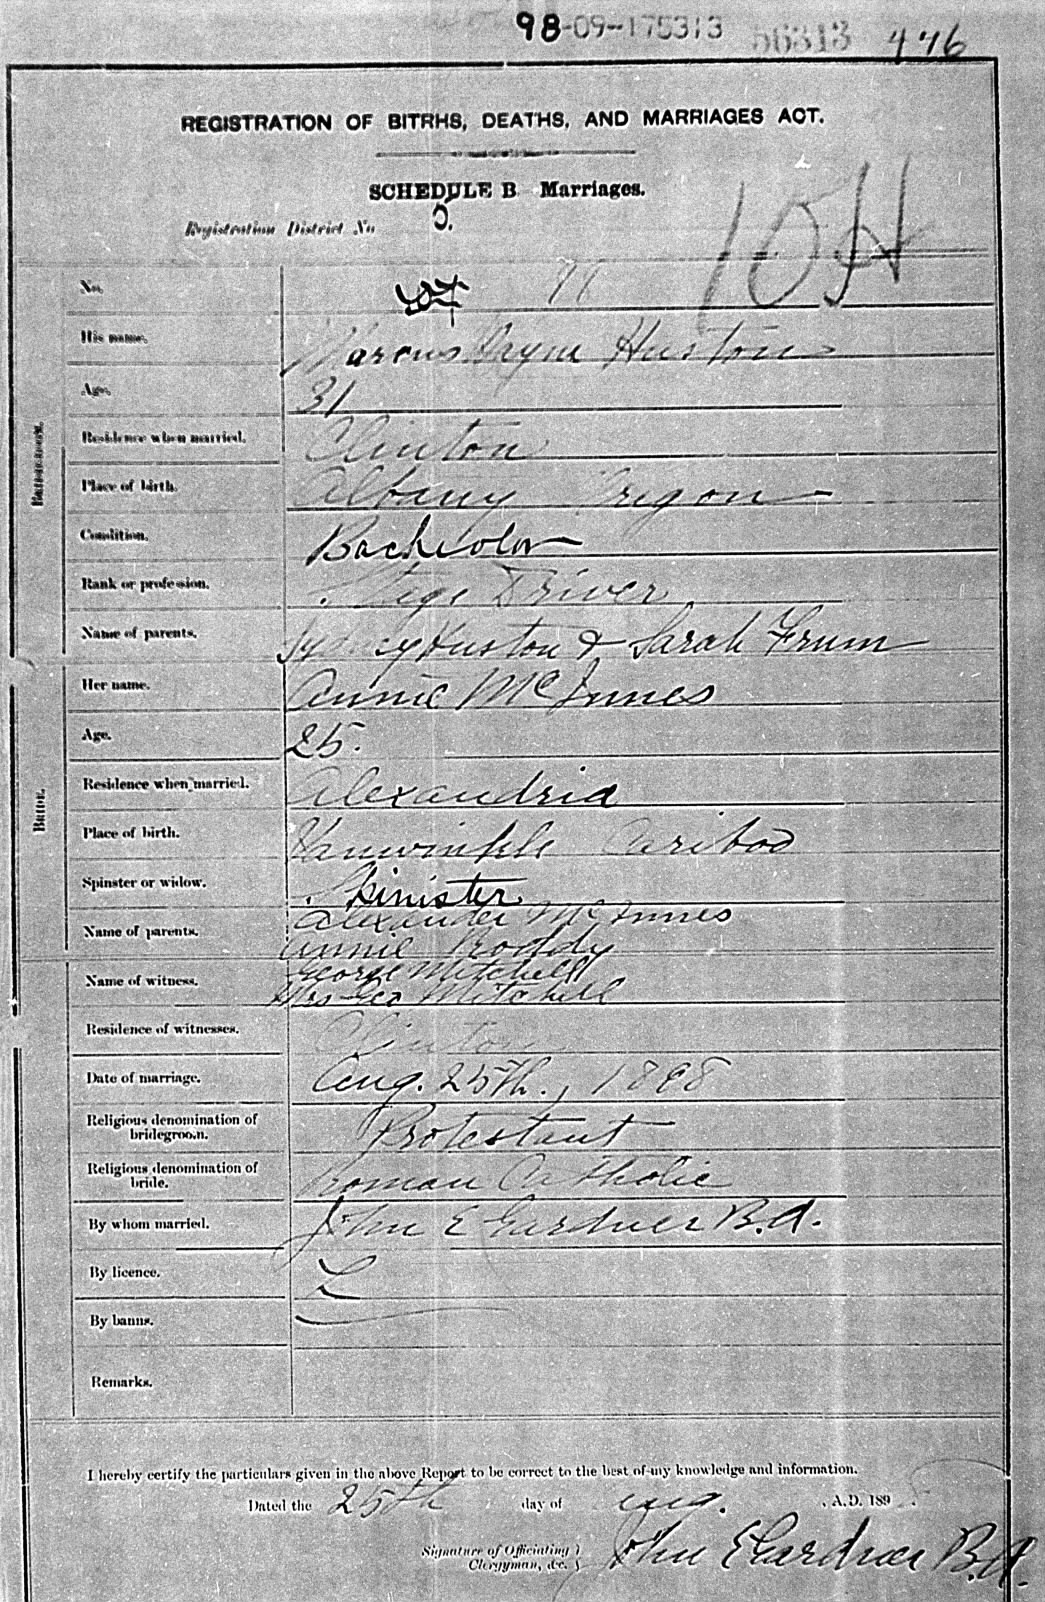 98-09-175313 56313 446
REGISTRATION OF BITRHS, DEATHS, AND MARRIAGES ACT.
SCHEDULE B Marriages.
Registration District No 5.
10H
No.
His name. Marcus Huston
Age. 31
Residence when married. Clinton
Place of birth. Albany Oregon
Condition. Bachelor
Rank or profession. Stage Driver
Name of parents. Huston & Sarah Frum
BRIDEGROOM.
Her name. Annie McInnes
Age. 25.
Residence when married. Alexandria
Place of birth. Vanwinkle Cariboo
Spinster or widow. Spinister
Name of parents. Alexander McInnes
Annie Roddy
BRIDE.
Name of witness. George Mitchell
Mrs Geo Mitchell
Residence of witnesses. Clinton
Date of marriage. Aug. 25th., 1898
Religious denomination of
bridegroom. Protestant
Religious denomination of
bride. Roman Catholic
By whom married. John E Gardner B.A.
By licence. L
By banns.
Remarks.
I hereby certify the particulars given in the above Report to be correct to the best of my knowledge and information.
Dated the 25th day of Aug. , A.D. 189
Signature of Officiating }
Clergyman, &c. } John E Gardner B.A.